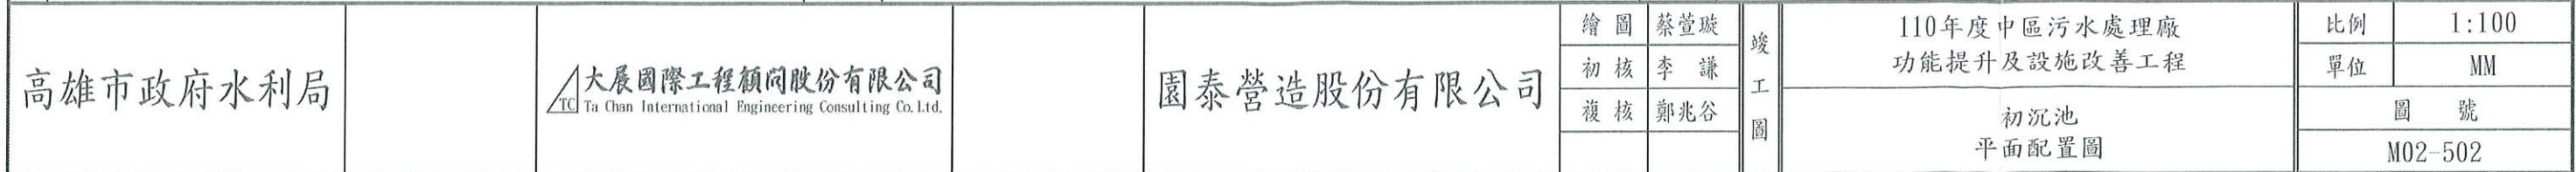 高雄市政府水利局
TC
大展國際工程顧問股份有限公司
Ta Chan International Engineering Consulting Co. Ltd.
園泰營造股份有限公司
繪圖 蔡萱璇
初核 李謙
複核 鄭兆谷
竣工圖
110年度中區污水處理廠
功能提升及設施改善工程
初沉池
平面配置圖
比例 1:100
單位 MM
圖號
M02-502